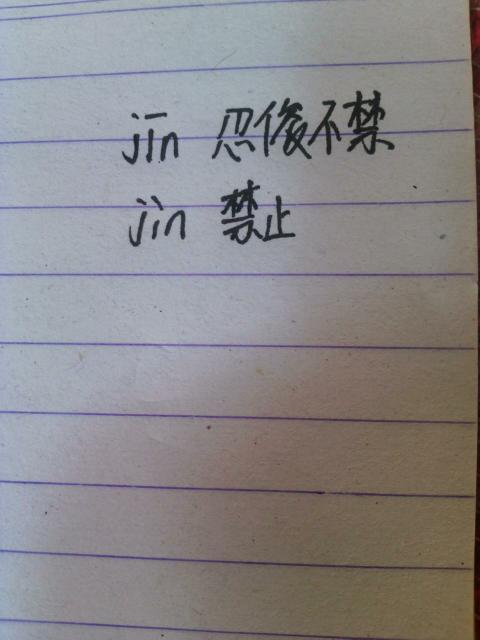 jīn 忍俊不禁
jìn 禁止